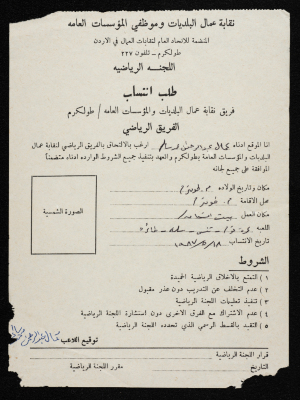 نقابة عمال البلديات وموظفي المؤسسات العامه
المنضمة للاتحاد العام لنقابات العمال في الاردن
طولكرم - تلفون ٢٢٧
اللجنه الرياضيه
طلب انتساب
فريق نقابة عمال البلديات والمؤسسات العامه / طولكرم
الفريق الرياضي
انا الموقع ادناه كمال عبدالرحمن ارغب بالالتحاق بالفريق الرياضي لنقابة عمال
البلديات والمؤسسات العامة بطولكرم والتعهد بتنفيذ جميع الشروط الوارده ادناه متضمناً
الموافقة على جميع لجانه
مكان وتاريخ الولاده
محل الاقامة
مكان العمل
اللعبه تنس - سلة - طائرة
تاريخ الانتساب
الصورة الشمسية
الشروط
١) التمتع بالاخلاق الرياضية الحميدة
٢) عدم التخلف عن التدريب دون عذر مقبول
٣) تنفيذ تعليمات اللجنة الرياضية
٤) عدم الاشتراك مع الفرق الاخرى دون استشارة اللجنة الرياضية
٥) التقيد بالقسط الرسمي الذي تحدده اللجنة الرياضية
توقيع اللاعب كمال عبدالرحمن
قرار اللجنة الرياضية
التاريخ مقرر اللجنة الرياضية